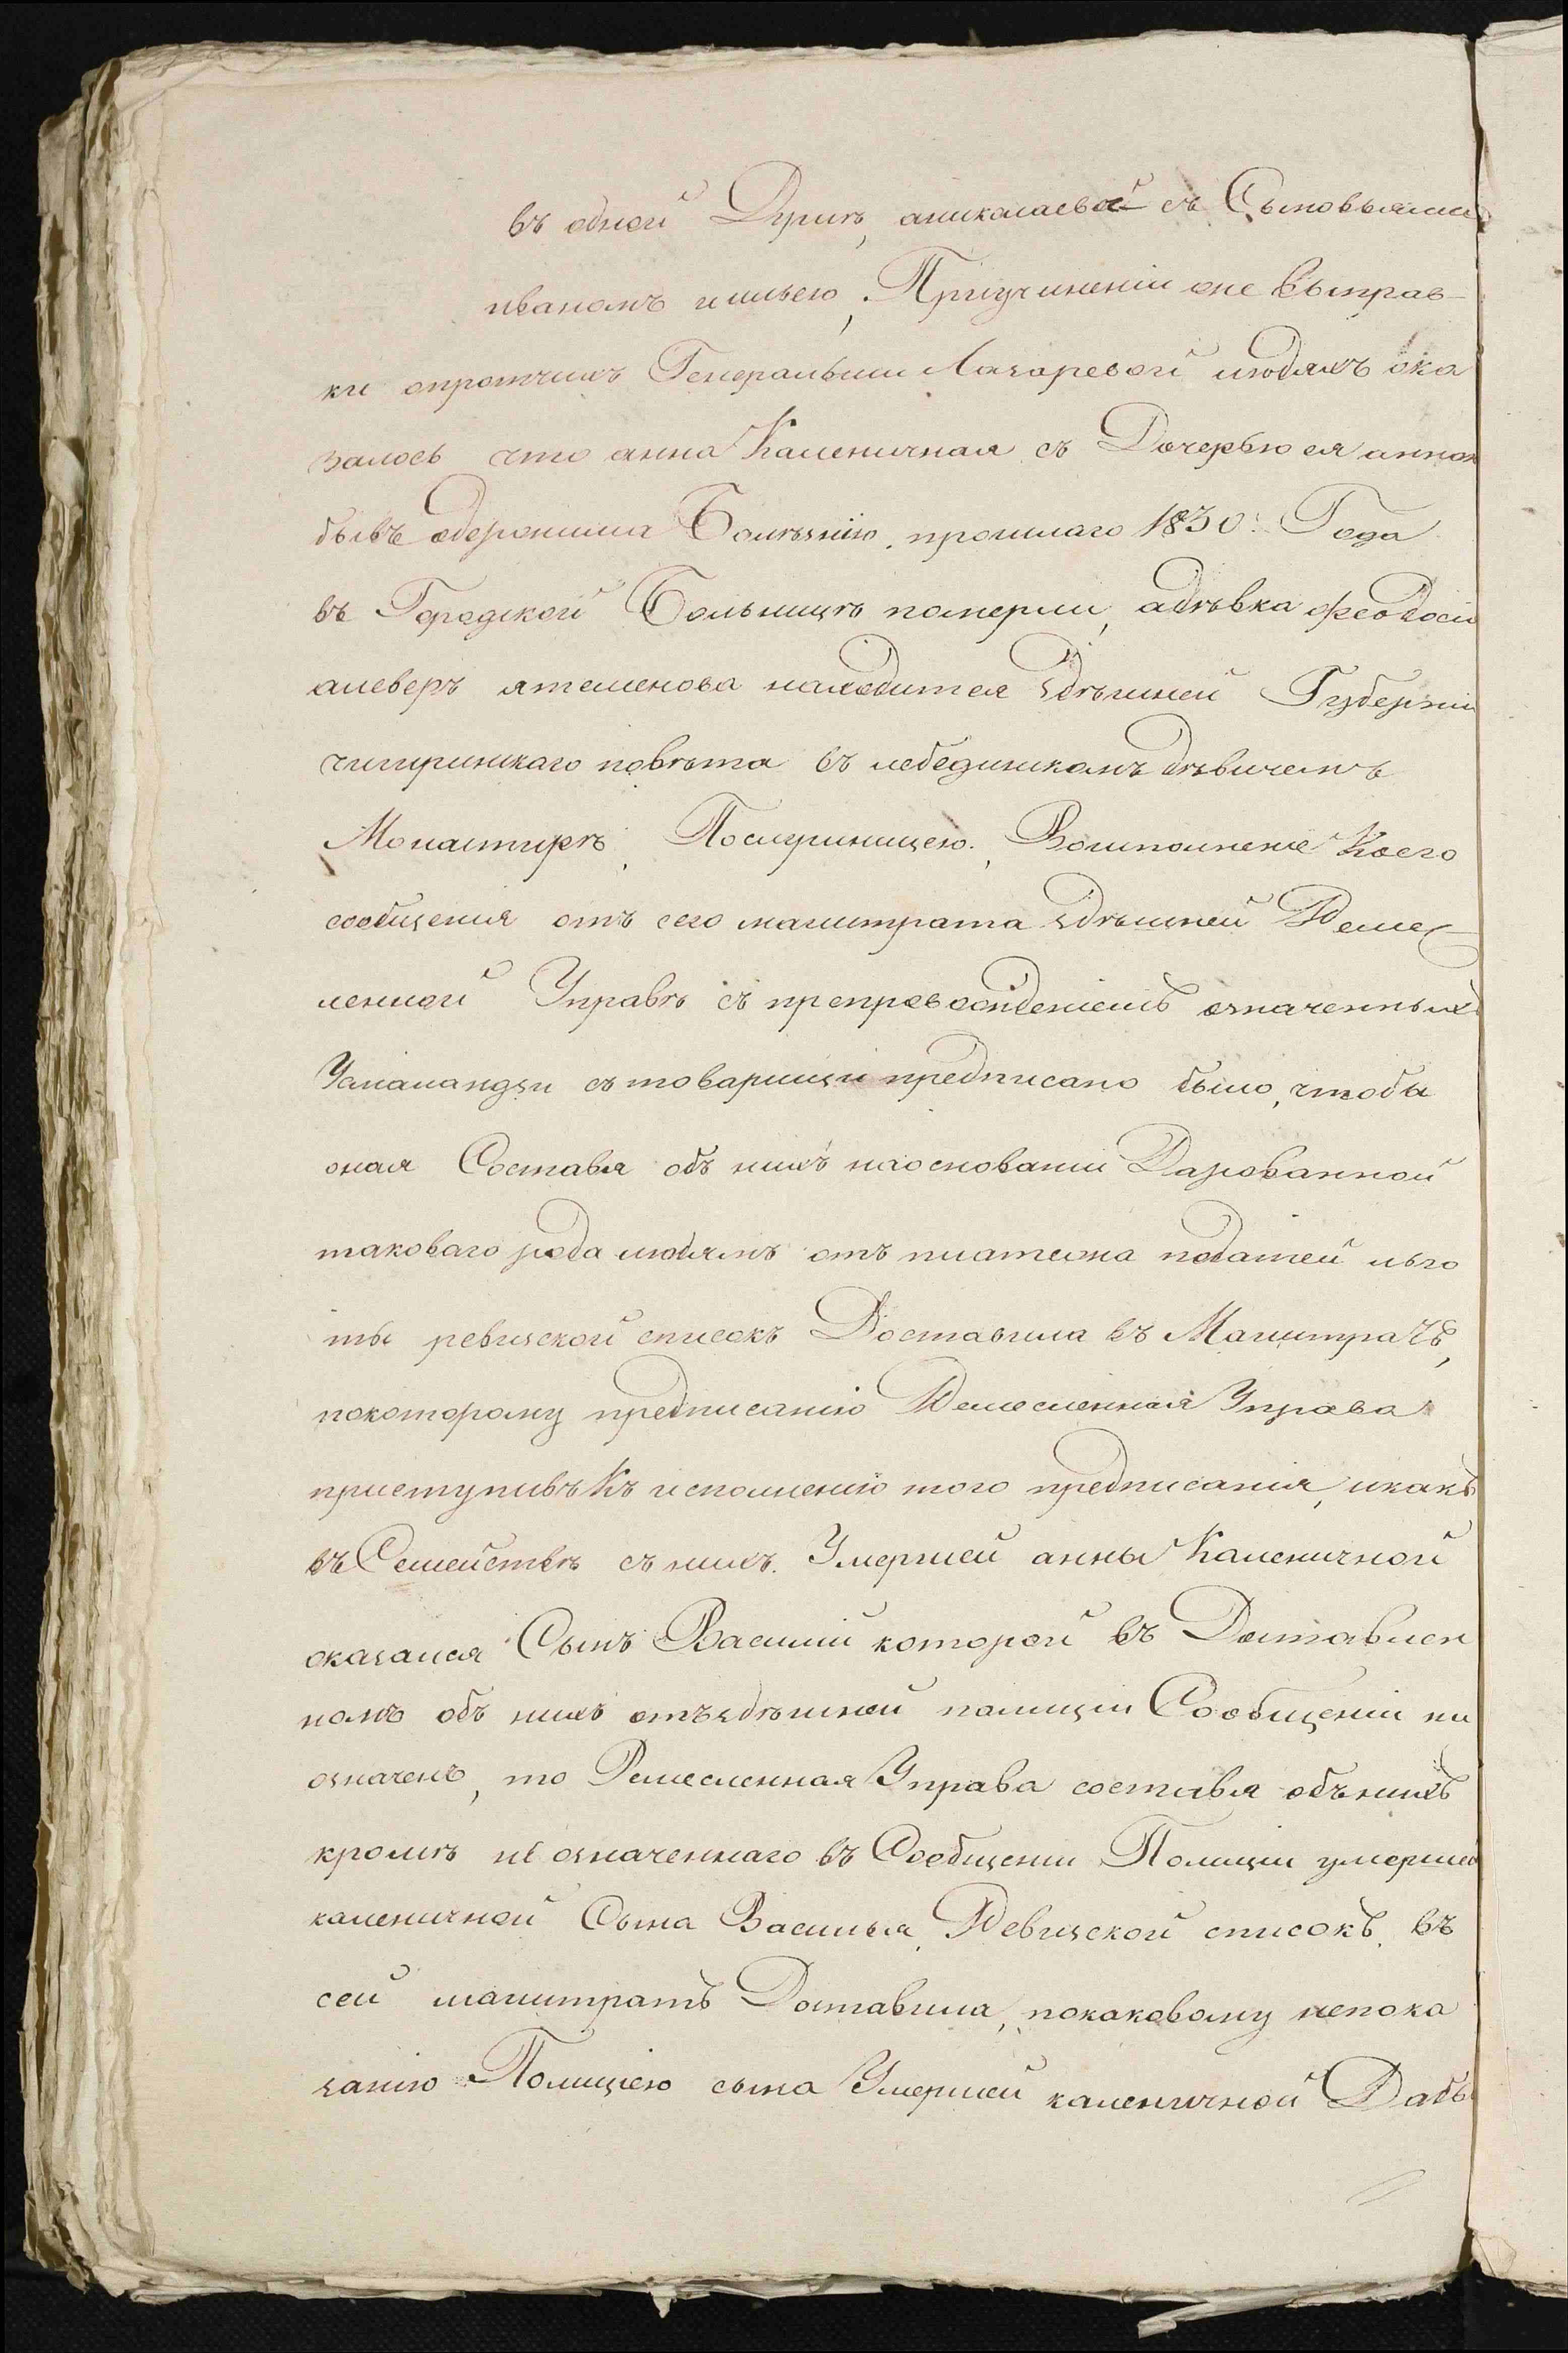 въ одной Душѣ, аниколаевой съ Сыновьями
иваномъ иильею, Приучиненіи оне выправ-
ки опротчихъ Генеральши Лазаревой людяхъ ока
залось что анна Каленичная съ Дочерью ея анною
бывъ одержима Болѣзнію, прошлаго 1830: Года
въ Городской Больницѣ померли, адѣвка феодосія
находится здѣшней Губерніи
чигиринскаго повѣта въ лебединскомъ дѣвичемъ
Монастирѣ, Послушницею. Восполненіе Коего
сообщенія отъ сего магистрата здѣшней Ремес
ленной Управѣ съ препровожденіемъ означенныхъ
стоварищи предписано было, чтобы
оная Составя объ нихъ наоснованіи Дарованной
таковаго рода людямъ отъ платежа податей льго
ты ревизской списокъ Доставила въ Магистратъ,
покоторому предписанію Ремесленная Управа
приступивъ Къ исполненію того предписанія, икакъ
въ Семействѣ съ нихъ Умершей анны Каленичной
оказался Сынъ Василий которой въ Доставлен
номъ объ нихъ отъздѣшной полиціи Сообщеніи ни
означенъ, то Ремесленная Управа составя объ нихъ
кромѣ не означеннаго въ Сообщеніи Полиціи умершей
каленичной Сына Василья, Ревизской списокъ, въ
сей магистратъ Доставила, покаковому непока
занію Полиціею сына Умершей каленичной Дабы